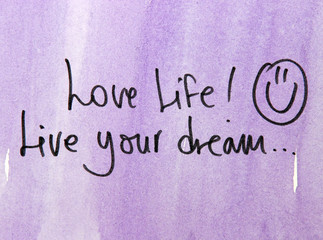 Love Life!
Live your dream...